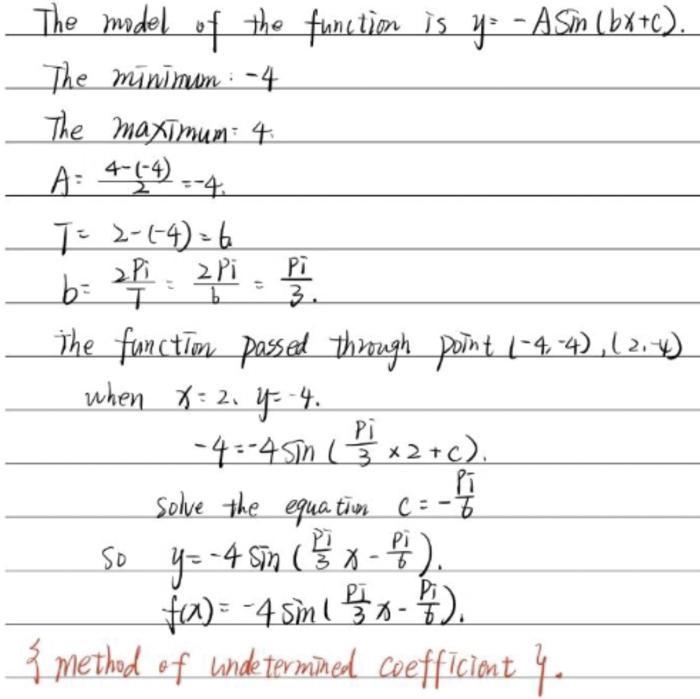 The model of the function is y= -ASin(bx+c).
The minimum: -4
The maximum: 4.
A= 4-(-4)/2 =-4.
T= 2-(-4)=6
b= 2Pi/T = 2Pi/6 = Pi/3.
The function passed through point (-4,-4),(2,-4)
when x=2、y=-4.
-4=-4sin(Pi/3 ×2+c).
solve the equation c=-Pi/6
So y=-4Sin(Pi/3 x-Pi/6).
f(x)=-4sin(Pi/3 x-Pi/6).
{method of undetermined coefficient}.